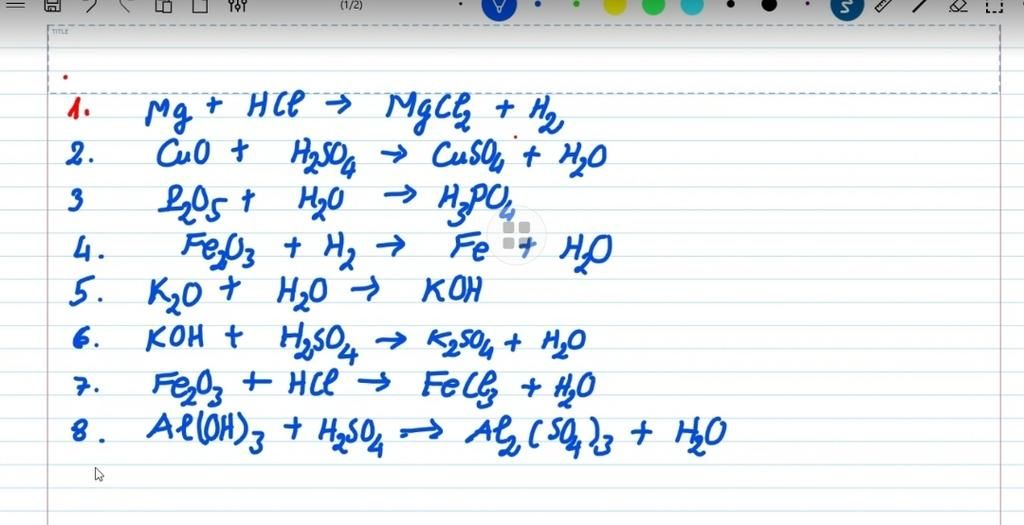 (1/2)
TITLE
1. Mg + HCl → MgCl₂ + H₂
2. CuO + H₂SO₄ → CuSO₄ + H₂O
3 P₂O₅ + H₂O → H₃PO₄
4. Fe₂O₃ + H₂ → Fe + H₂O
5. K₂O + H₂O → KOH
6. KOH + H₂SO₄ → K₂SO₄ + H₂O
7. Fe₂O₃ + HCl → FeCl₃ + H₂O
8. Al(OH)₃ + H₂SO₄ → Al₂(SO₄)₃ + H₂O